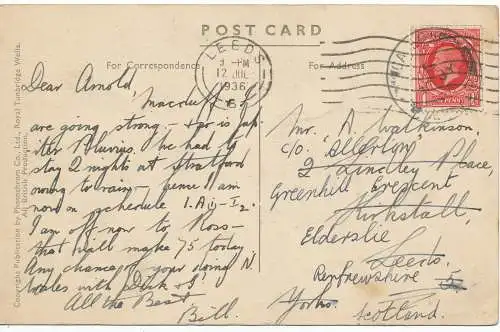 POST CARD
For Correspondence
For Address
LEEDS
PM
12 JUL
1936
PENNY
Copyright Publication by Photochrom Co., Ltd., Royal Tunbridge Wells.
All British Production.
Dear Arnold,
Macduff & I
are going strong.
He had to
stay 2 nights at Stratford
owing to rain — hence I am
now on schedule
I am off now to Ross—
that will make 75 today
Any chance of your doing N.
Wales with Dick & I
All the Best
Bill.
Mr. A Watkinson,
c/o Allerton
2 Place,
Greenhill Crescent
Kirkstall,
Elderslie
Leeds.
Renfrewshire 5.
Yorks.
Scotland.